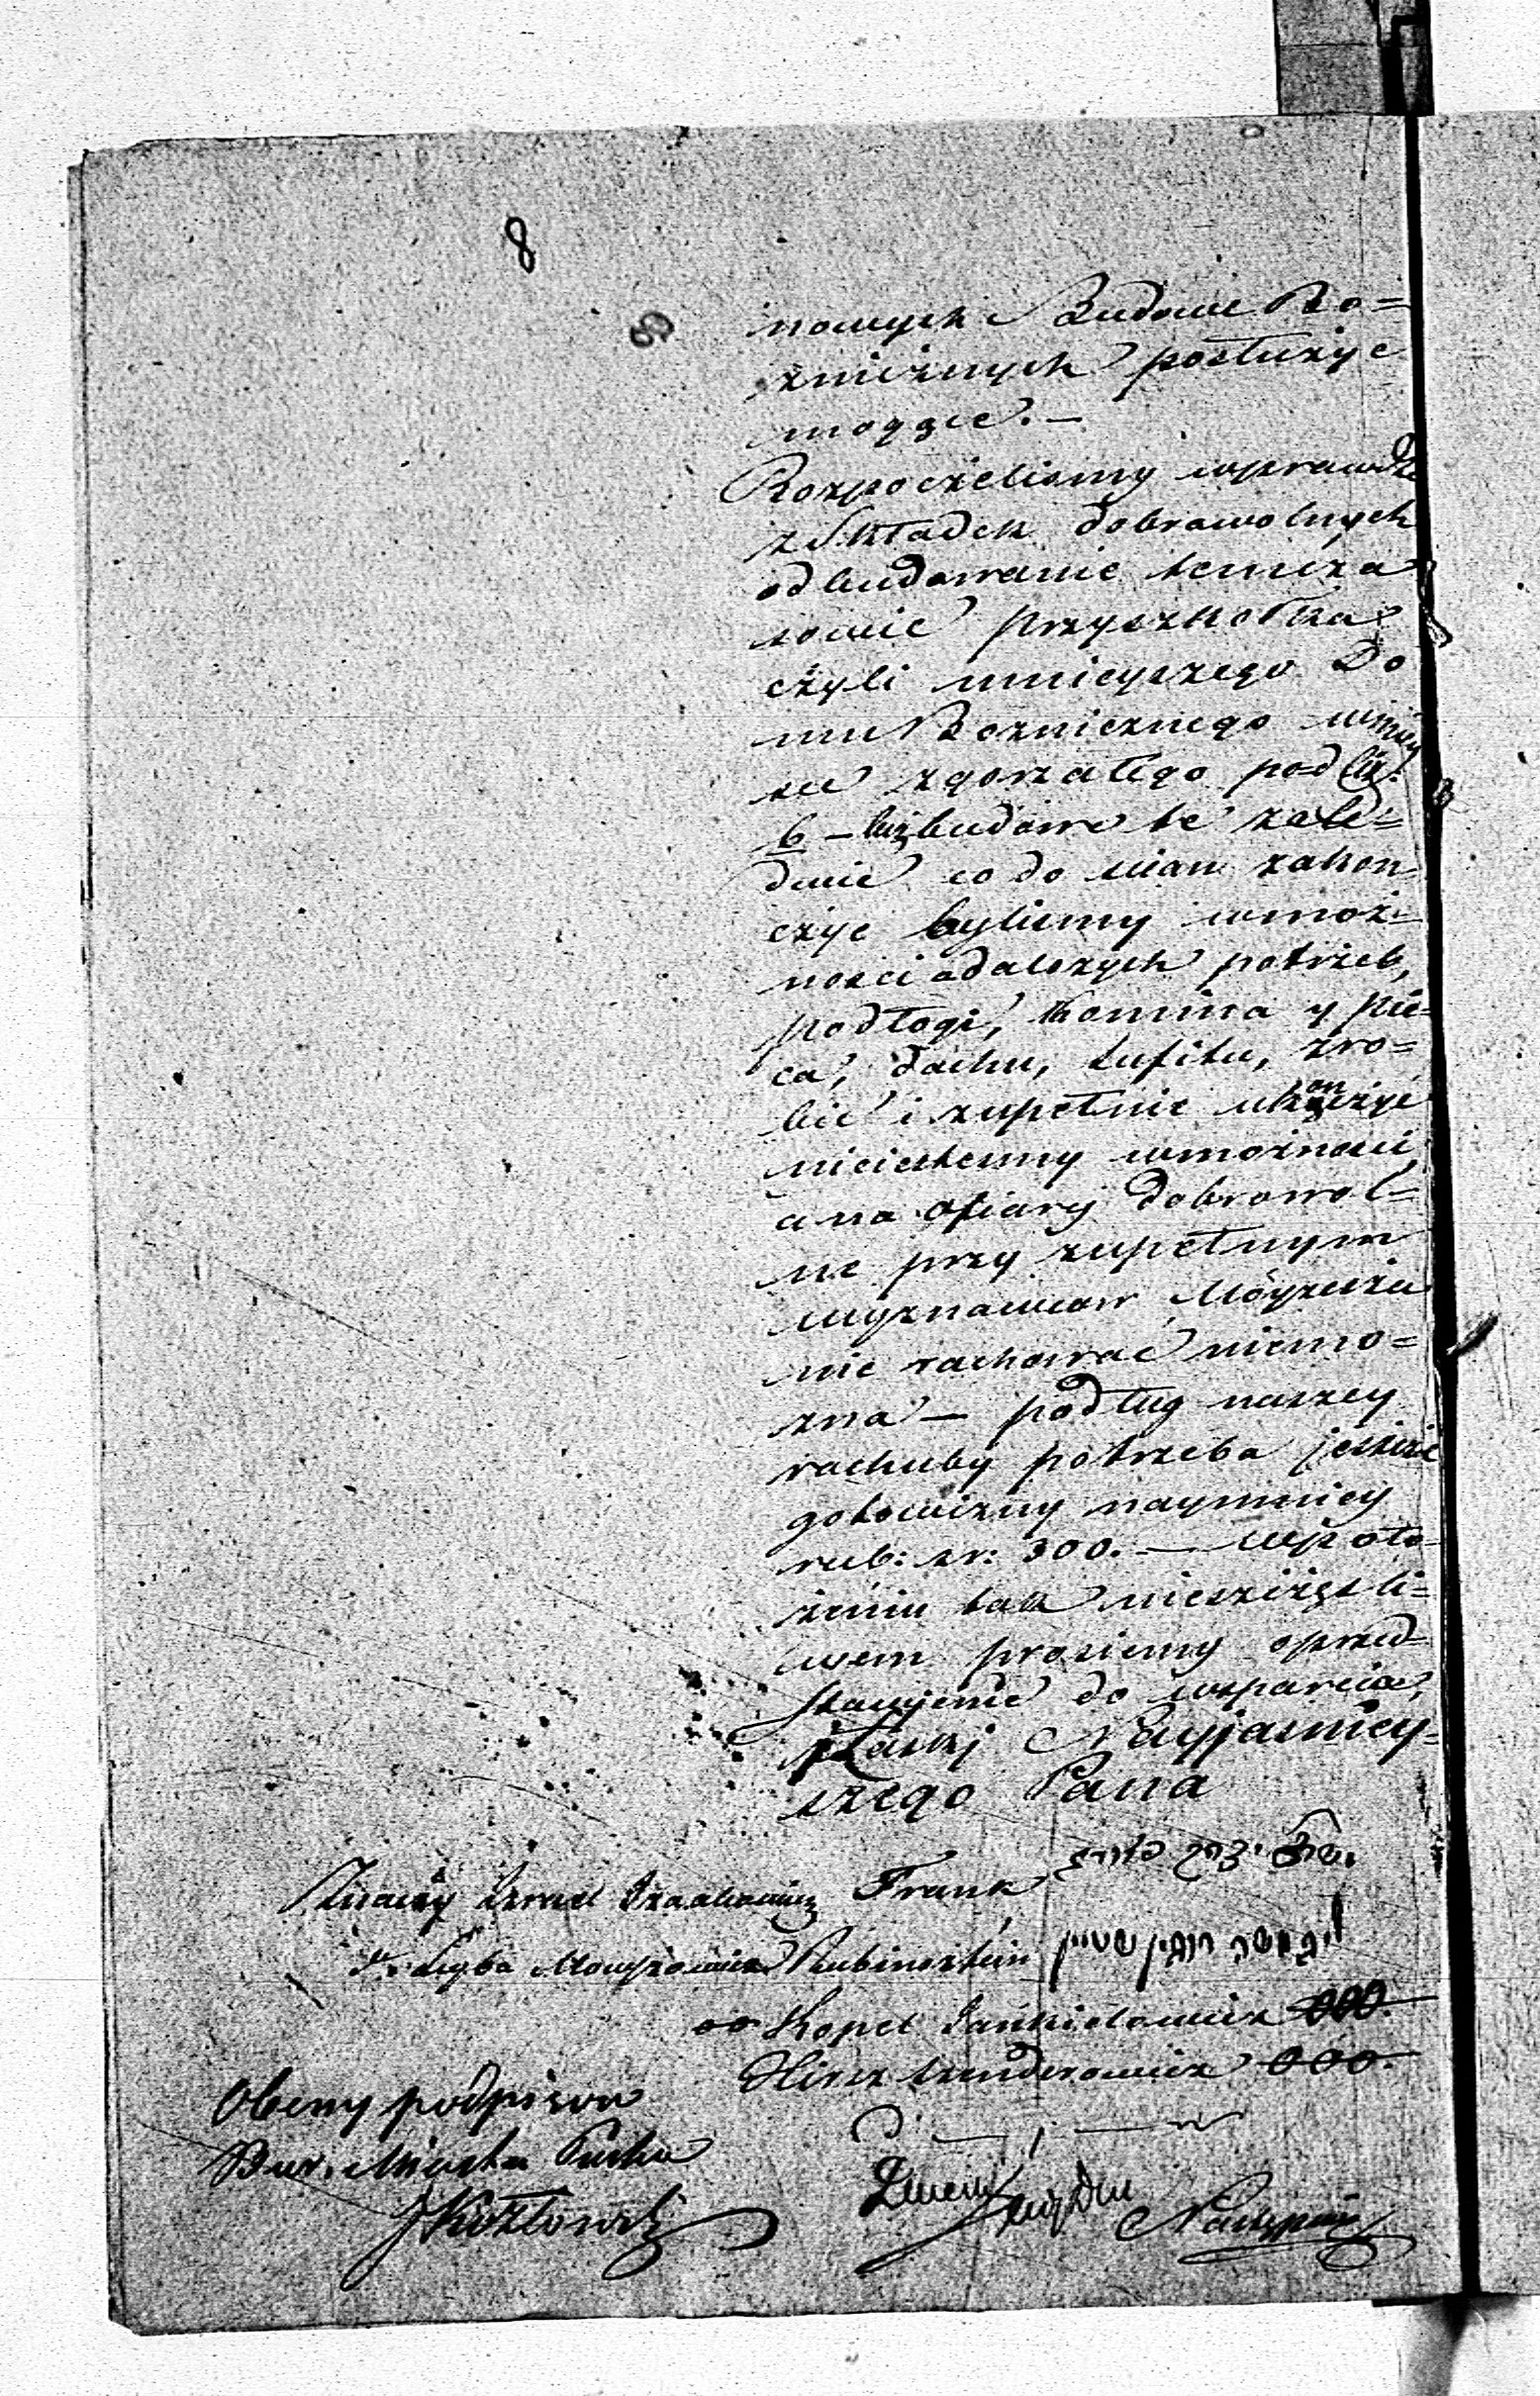 8
nowych Budowie Bo=
znicznych posłużyc
mogące. –
Rozpoczelismy wprawdzie
z Składek dobrowolnych
odbudowanie temcza
sowie przyszkołka
czyli mnieyszego Do
mu Boznicznego wmiey
sce zgorzałego pod Nr.
6 – lecz budowe te zale=
dwie co do scian zakon
czyc bylismy wmoż=
nosci adalszych potrzeb,
podłogi, komina y pie=
ca, dachu, sufitu, zro=
bic i zupełnie ukończyć
niciestesmy wmożnosci,
a na ofiary dobrowol=
ne przy zupełnym
wyznawcow Móyzesza
nie rachować niemo=
zna – podług naszey
rachuby potrzeba jeszcze
gotowizny naymniey
rub: sr: 300. – wpoło=
żeniu tak nieszczęsli=
wem prosiemy oprzed=
stawienie do wsparcia,
Łaski Nayjasniey=
szego Pana
Znaczy Izrael Izaakowicz Frank
dto Leyba Moyżeszowicz Rubinsztein לייב משה רובין שטיין
oo Kopel Jankielowicz ooo.
Hirsz Szenderowicz ooo.
Obecny podpisom
Bur. Miasta Pucka
JKozłowski